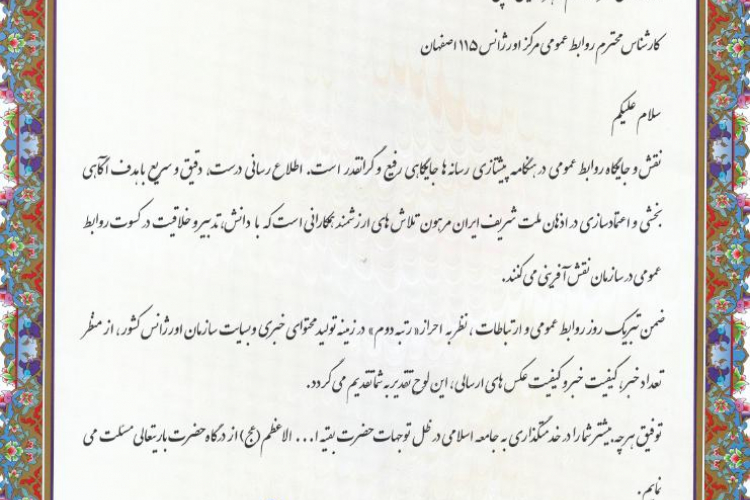 کارشناس محترم روابط عمومی مرکز اورژانس ۱۱۵ اصفهان
سلام علیکم
نقش و جایگاه روابط عمومی در هنگامه پیشتازی رسانه ها جایگاهی رفیع و گرانقدر است. اطلاع رسانی درست، دقیق و سریع با هدف آگاهی
بخشی و اعتمادسازی در اذهان ملت شریف ایران مرهون تلاش های ارزشمند همکارانی است که با دانش، تدبیر و خلاقیت در کسوت روابط
عمومی در سازمان نقش آفرینی می کنند.
ضمن تبریک روز روابط عمومی و ارتباطات ، نظر به احراز «رتبه دوم» در زمینه تولید محتوای خبری وبسایت سازمان اورژانس کشور ، از منظر
تعداد خبر، کیفیت خبر و کیفیت عکس های ارسالی، این لوح تقدیر به شما تقدیم می گردد.
توفیق هر چه بیشتر شما را در خدمتگذاری به جامعه اسلامی در ظل توجهات حضرت بقیه ا... الاعظم (عج) از درگاه حضرت باریتعالی مسئلت می
نمایم .